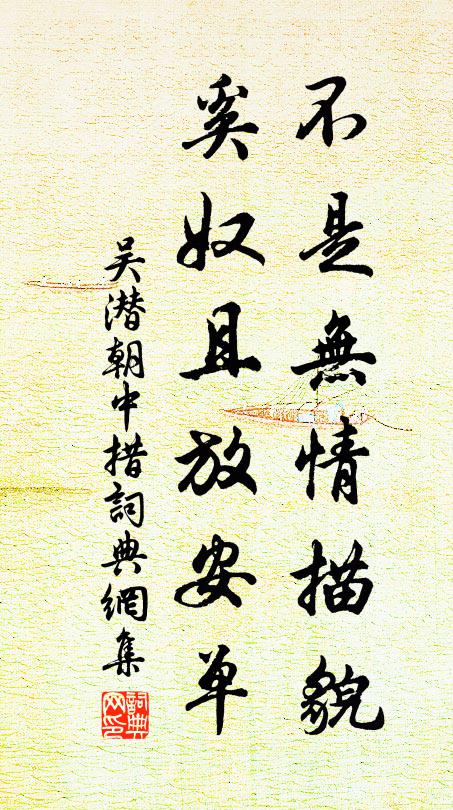 不是無情描貌
奚奴且放安单
吴潛朝中措詞典網集
詞典网印